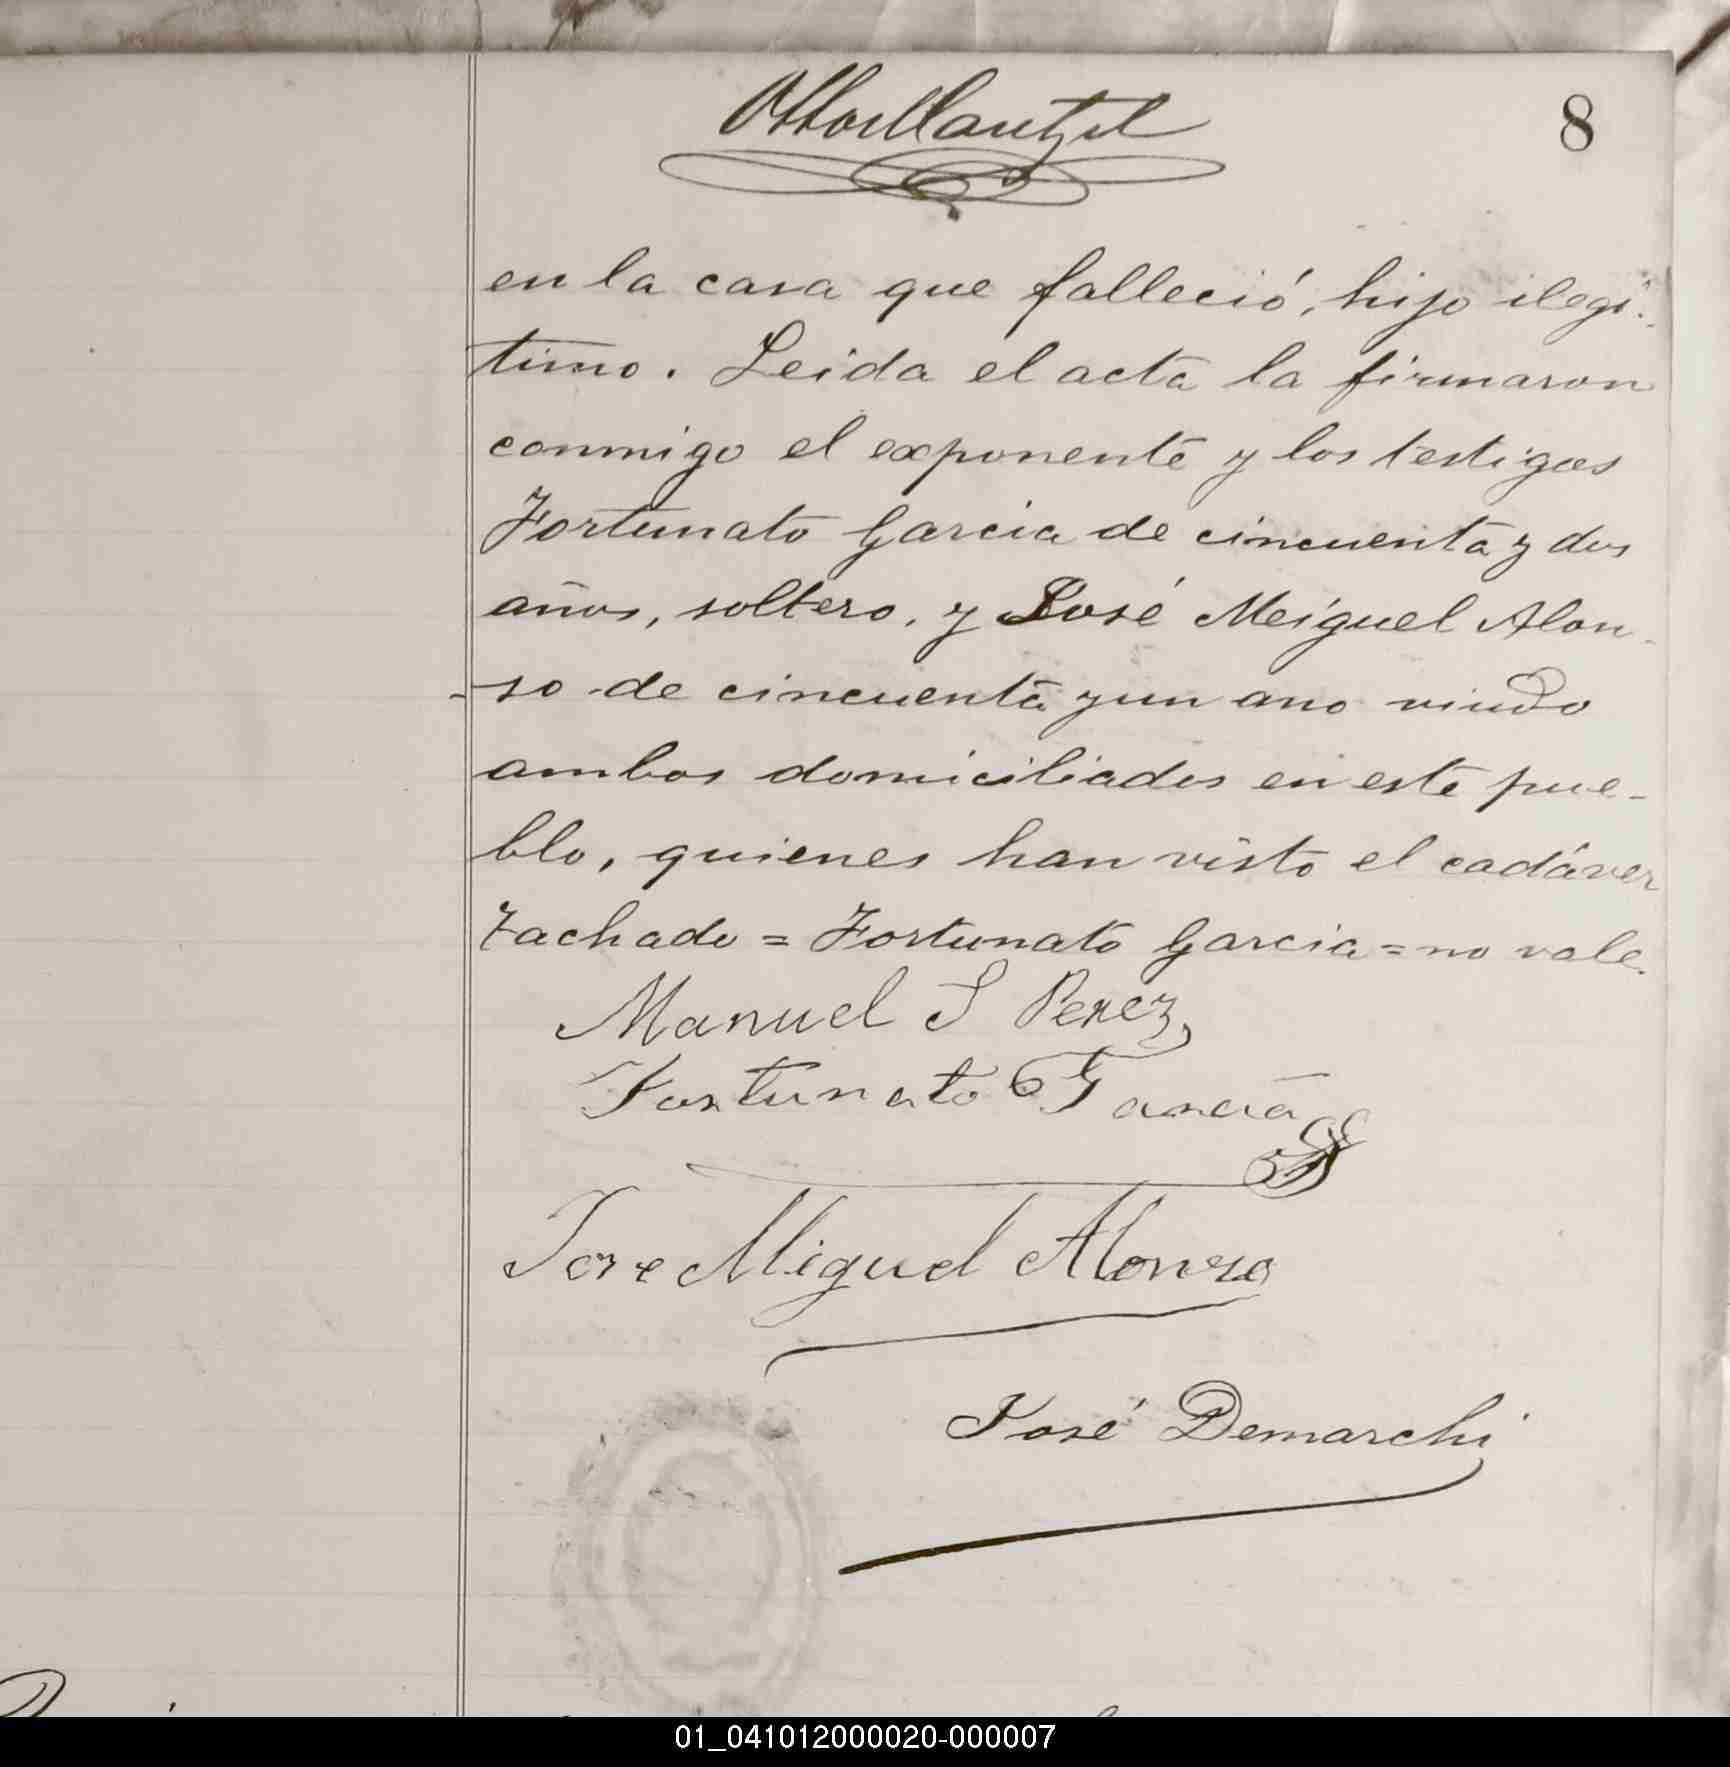 8
en la casa que falleció, hijo ilegi-
timo. Leida el acta la firmaron
conmigo el exponente y los testigos
Fortunato Garcia de cincuenta y dos
años, soltero, y José Meiguel Alon-
so de cincuenta y un ano viudo
ambos domiciliados en este pue-
blo, quienes han visto el cadáver
Tachado = Fortunato Garcia = no vale.
Manuel S Perez
Fortunato Garcia
Jose Miguel Alonso
José Demarchi
01_041012000020-000007